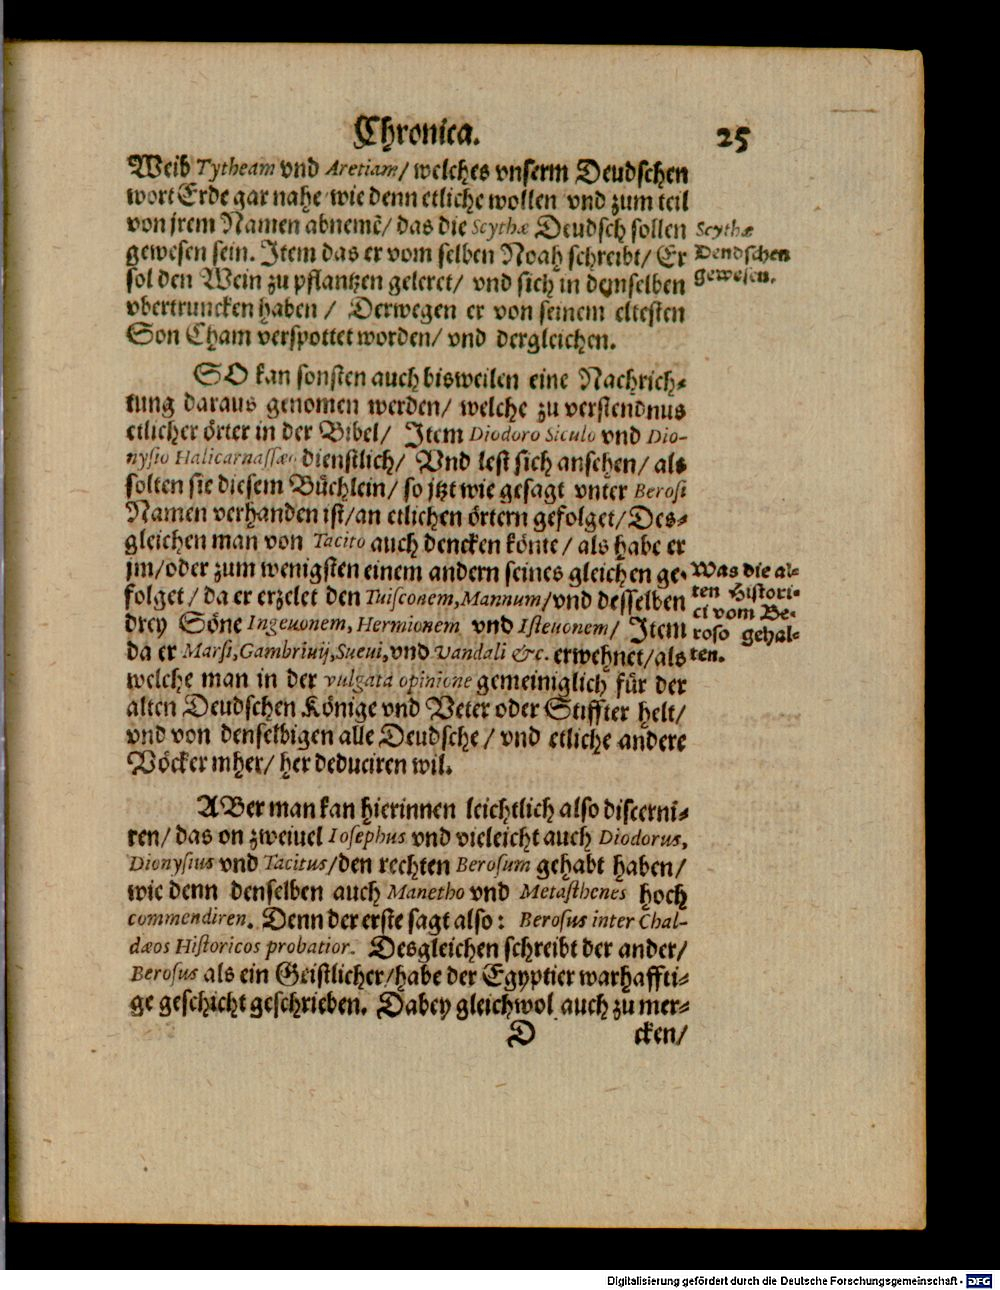 Chronica. 25
Weib Tytheam vnd Aretiam/ welches vnserm Deudschen
wort Erde gar nahe wie denn etliche wollen vnd zum teil
von jrem Namen abnemẽ/ das die Scythæ Deudsch sollen
gewesen sein. Item das er vom selben Noah schreibt/ Er
sol den Wein zu pflantzen geleret/ vnd sich in denselben
vbertruncken haben / Derwegen er von seinem eltesten
Son Cham verspottet worden/ vnd dergleichen.
Scythæ
Deudschen
gewesen.
SO kan sonsten auch bisweilen eine Nachrich-
tung daraus genomen werden/ welche zu verstendnus
etlicher örter in der Bibel/ Item Diodoro Siculo vnd Dio-
nysio Halicarnassæo dienstlich/ Vnd lest sich ansehen/ als
solten sie diesem Büchlein/ so jtzt wie gesagt vnter Berosi
Namen verhanden ist/an etlichen örtern gefolget/ Des-
gleichen man von Tacito auch dencken könte/ als habe er
jm/oder zum wenigsten einem andern seines gleichen ge-
folget/ da er erzelet den Tuisconem, Mannum/vnd desselben
drey Söne Ingeuonem, Hermionem vnd Isteuonem/ Item
da er Marsi, Gambriuij, Sueui, vnd Vandali &c. erwehnet/als
welche man in der vulgata opinione gemeiniglich für der
alten Deudschen Könige vnd Veter oder Stiffter helt/
vnd von denselbigen alle Deudsche/ vnd etliche andere
Völcker mher/ her deduciren wil.
Was die al-
ten Histori-
ci vom Be-
roso gehal-
ten.
ABer man kan hierinnen leichtlich also discerni-
ren/ das on zweiuel Iosephus vnd vieleicht auch Diodorus,
Dionysius vnd Tacitus/den rechten Berosum gehabt haben/
wie denn denselben auch Manetho vnd Metasthenes hoch
commendiren. Denn der erste sagt also: Berosus inter Chal-
dæos Historicos probatior. Desgleichen schreibt der ander/
Berosus als ein Geistlicher/habe der Egyptier warhaffti-
ge geschicht geschrieben. Dabey gleichwol auch zu mer-
D cken/
Digitalisierung gefördert durch die Deutsche Forschungsgemeinschaft - DFG